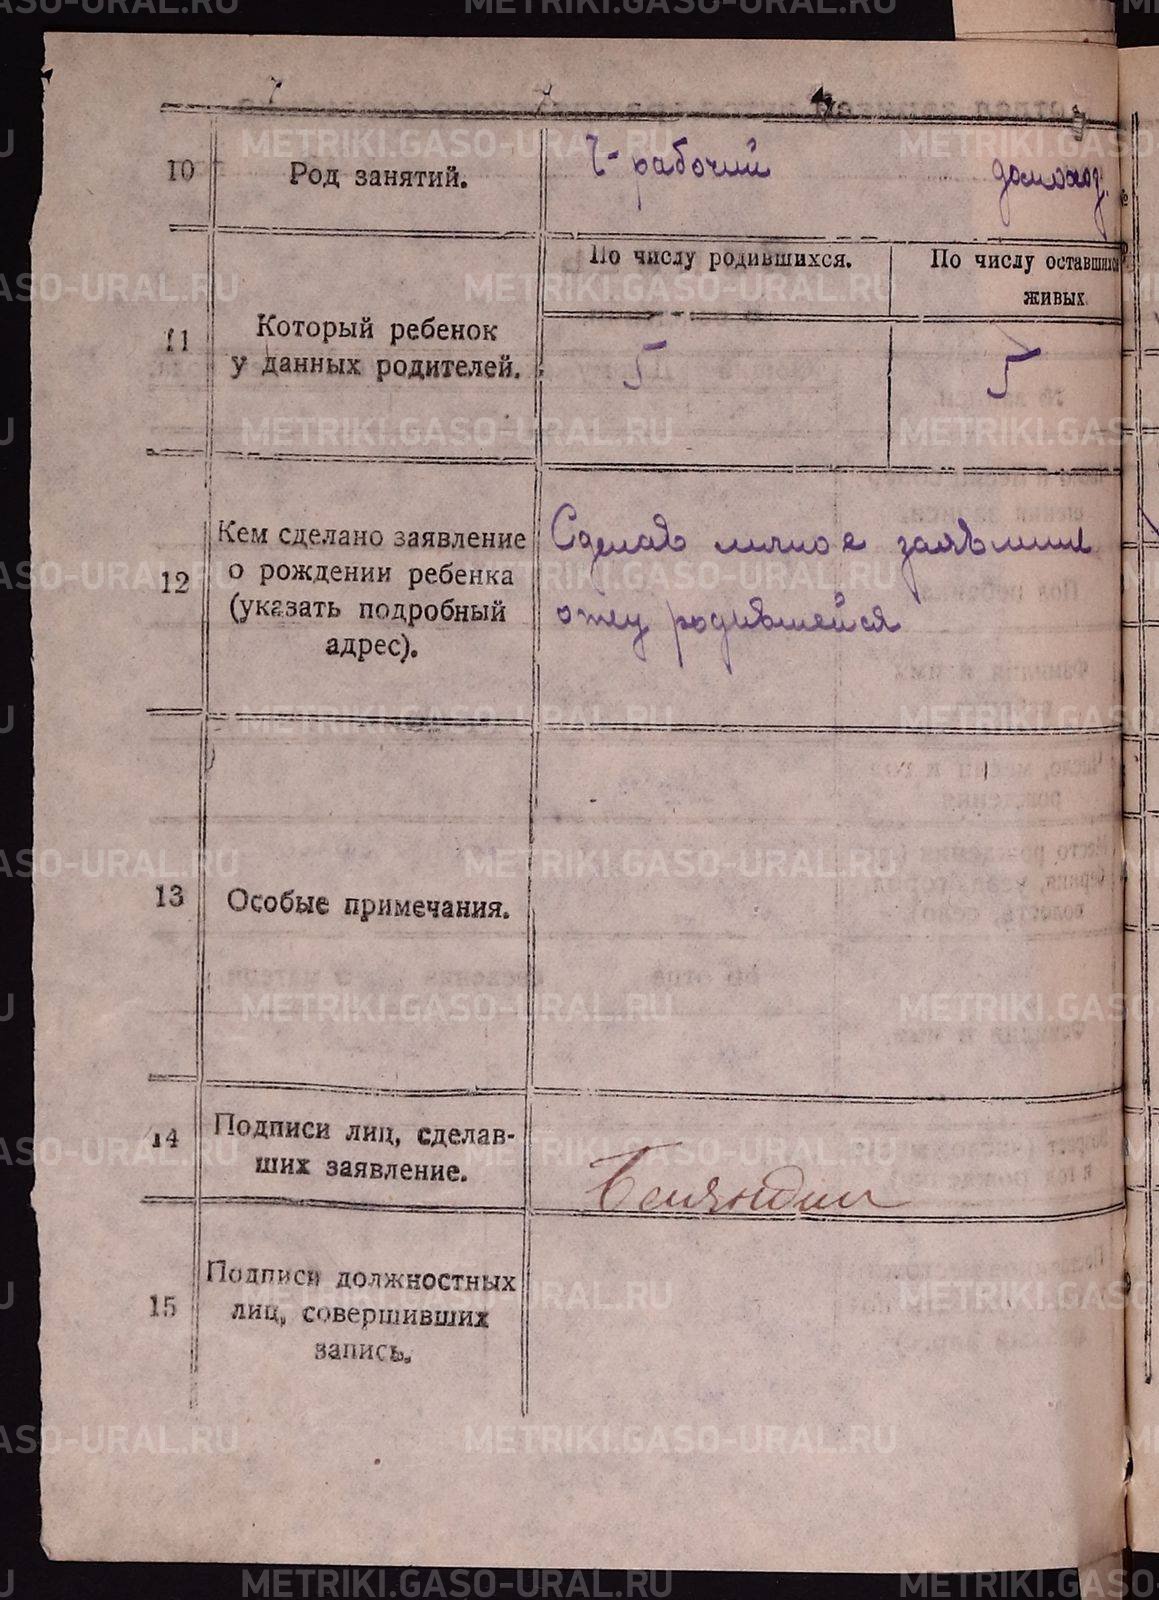 METRIKI.GASO-URAL.RU
10
Род занятий.
Ч-рабочий
домохоз.
По числу родившихся.
По числу оставшихся
живых.
11
Который ребенок
у данных родителей.
5
5
12
Кем сделано заявление
о рождении ребенка
(указать подробный
адрес).
Сделав личное заявление
отец родившейся
13
Особые примечания.
14
Подписи лиц, сделав-
ших заявление.
15
Подписи должностных
лиц, совершивших
запись.